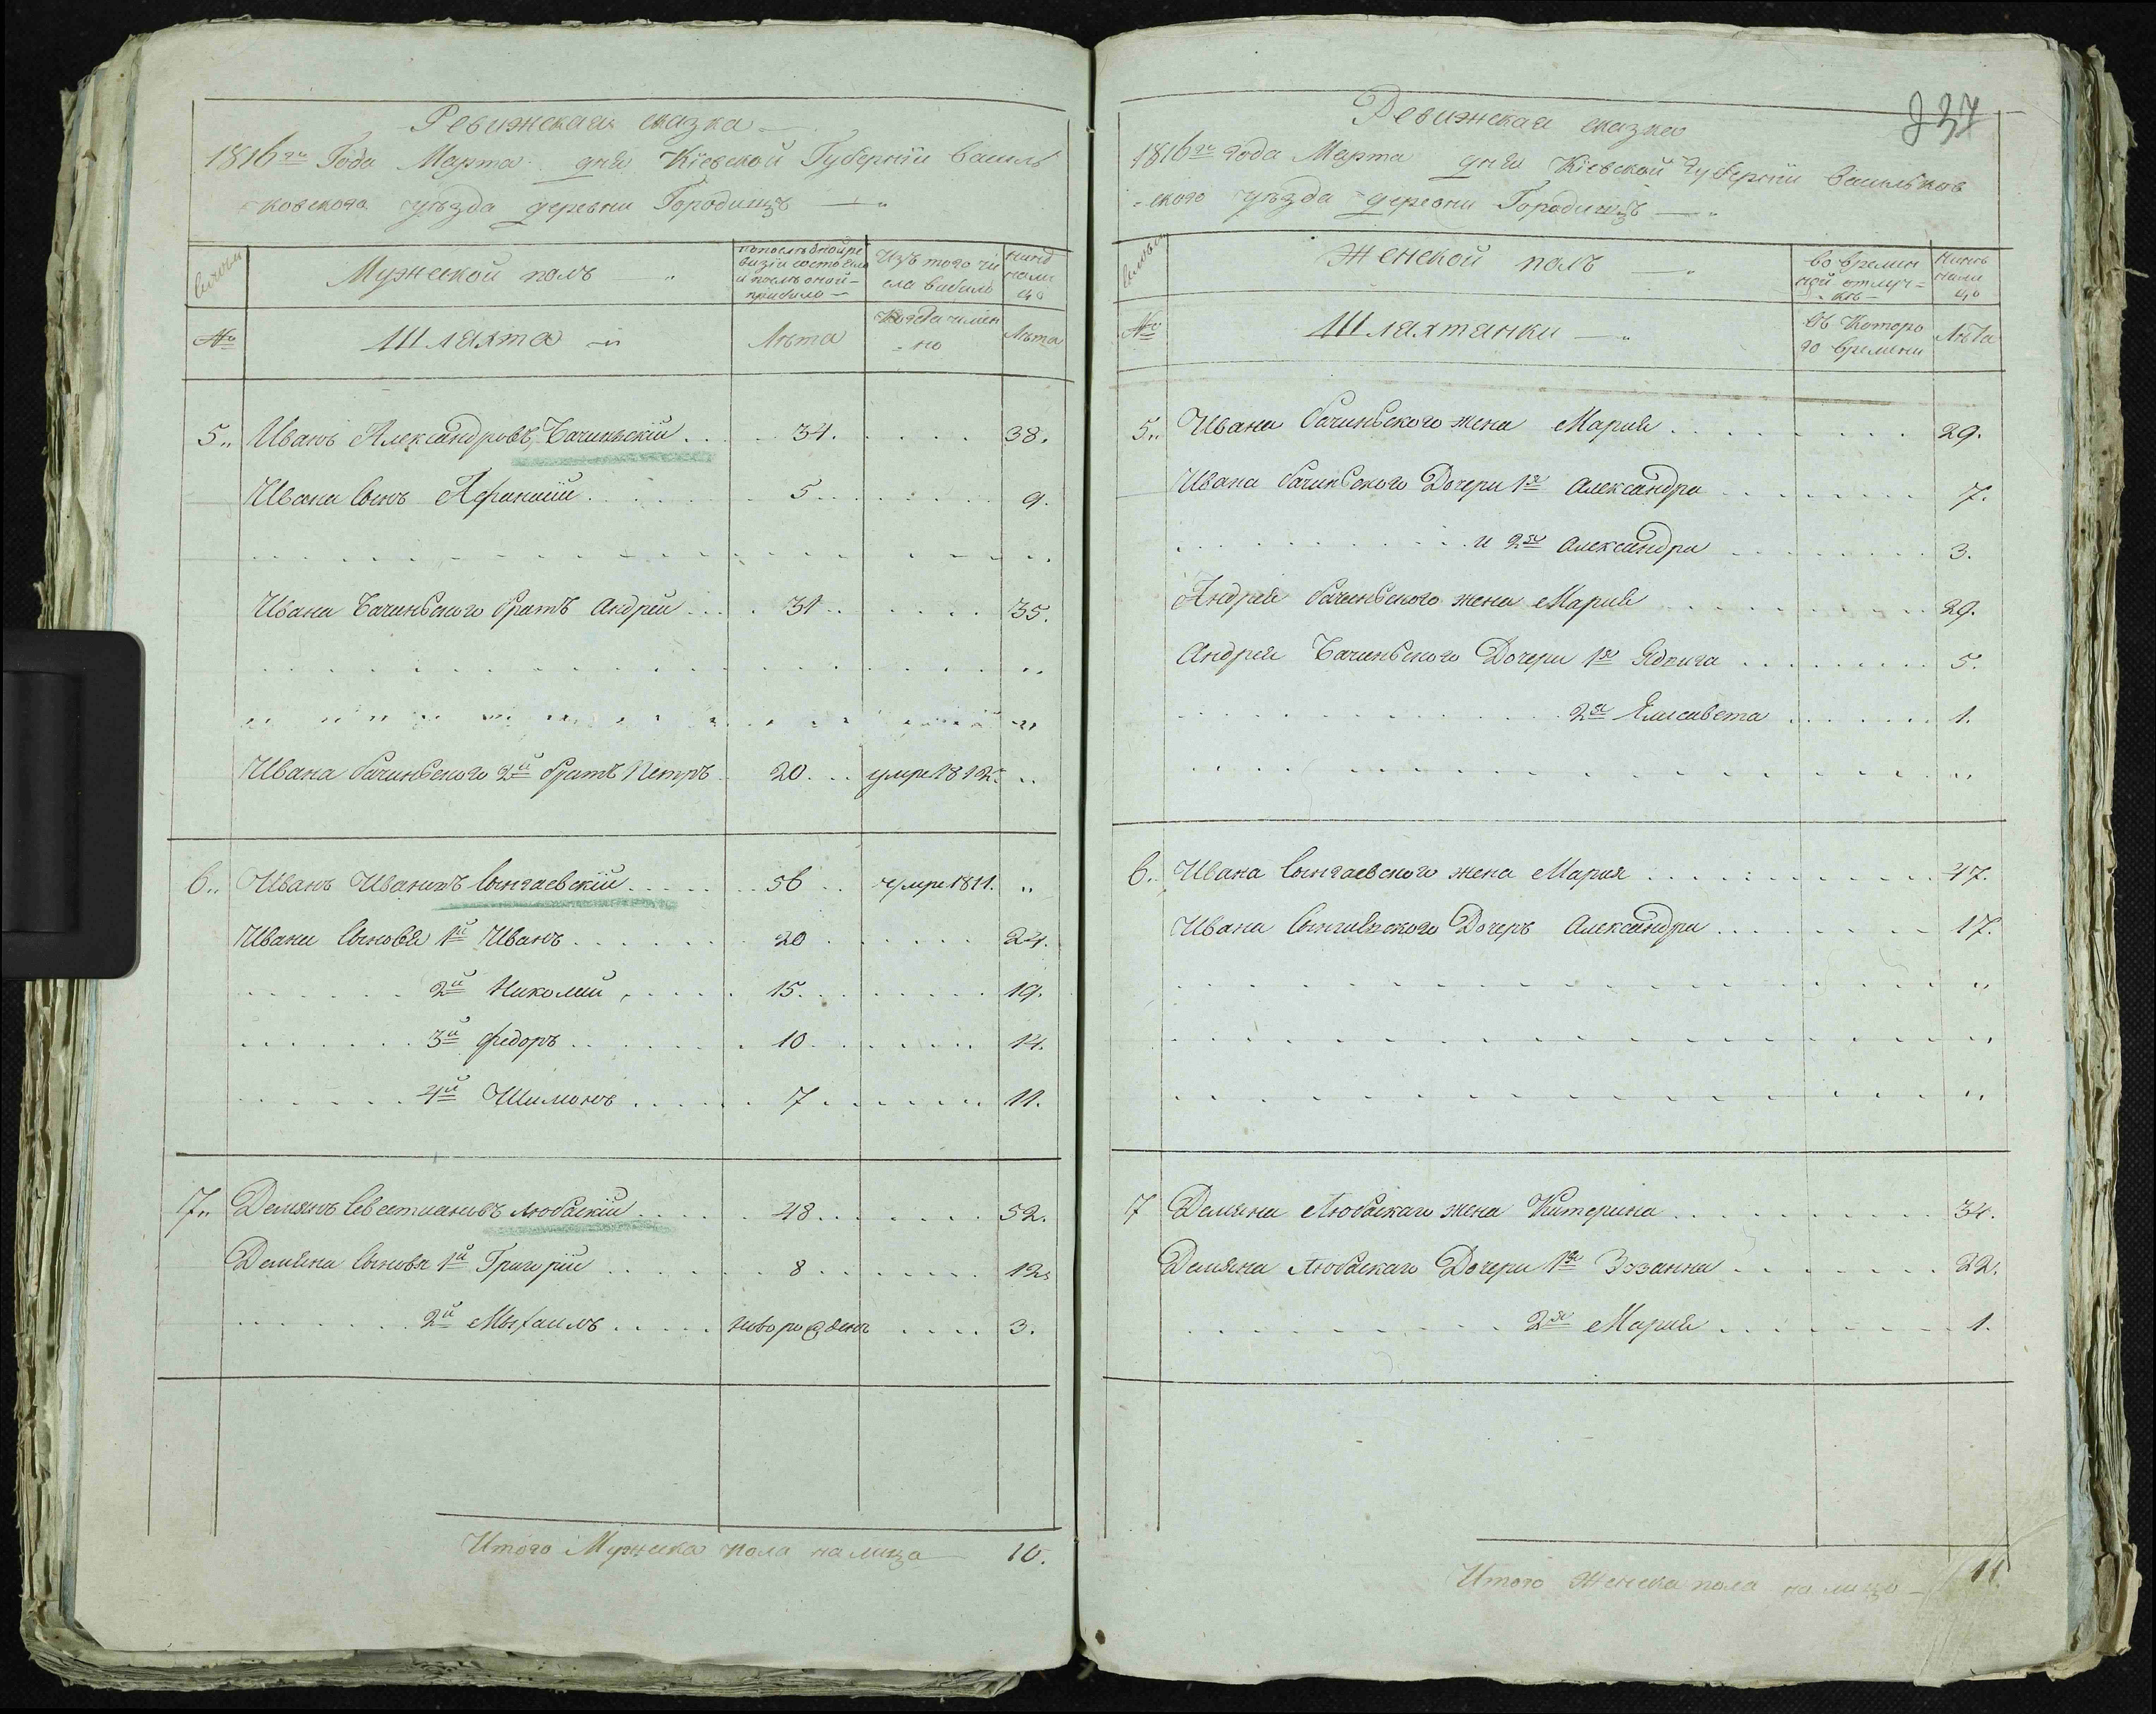 Ревижская сказка
1816го Года Марта дня Кіевской Губерніи Василь
ковского уѣзда деревни Городищъ
семьи
Мужеской полъ
по послѣдной ре
визіи состояло
и послѣ оной
прибыло
Изъ того чи
сла выбыло
нынѣ
нали
цо
№
Шляхта
Лѣта
Когда имен
но
Лѣта
5 Иванъ Александровъ Бачинскій 34. 38.
Ивана Сынъ Афанасій 5 9.
Ивана Бачинского братъ Андрей 31 35.
Ивана бачинского 2й братъ Петръ 20 умре 1812
6 Иванъ Ивановъ Сынгаевскій 56 умре 1811.
Ивана Сыновя 1й Иванъ 20 24.
2й Николай 15. 19.
3й Федоръ 10 14.
4й Шимонъ 7 11.
7 Демянъ Севастиановъ Любаскій 48 52.
Демяна Сыновя 1й Григорій 8 12
2й Мыхаилъ новорожденъ 3.
Итого Мужеска пола на лицо 10.
237
Ревижская сказка
1816го года Марта дня Кіевской Губерніи Васильков
ского уѣзда деревни Городищъ
семьи
Женской полъ
во времен
ной отлуч
кѣ
Нынѣ
нали
цо
№
Шляхтянки
Съ Которо
го времени
Лѣта
5 Ивана бачинского жена Марія 29.
Ивана бачинского Дочери 1я Александра 7.
и 2я Александра 3.
Андрея бачинского жена Марія 29.
Андрея Бачинского Дочери 1я Ядвига 5.
2я Елисавета 1.
6. Ивана Сынгаевского жена Мария 47.
Ивана Сынгаевского Дочеръ Александра 17.
7 Демяна Любаскаго жена Катерина 34.
Демяна Любаскаго Дочери 1я Зузанна 22.
2я Марія 1.
Итого Женска пола на лицо 11.